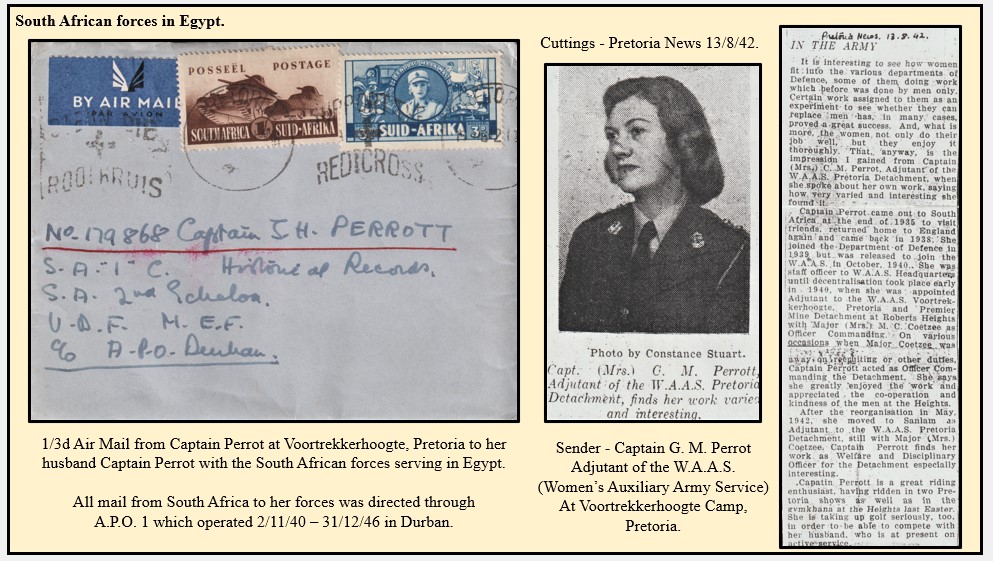 South African forces in Egypt.
BY AIR MAIL
PAR AVION
POSSEËL POSTAGE
SOUTH AFRICA 1/- SUID-AFRIKA
SUID-AFRIKA 3d
ROOI KRUIS
RED CROSS
No. 179868 Captain J.H. PERROTT
S.A.I.C. Historical Records.
S.A. 2nd Echelon.
U.D.F. M.E.F.
c/o A.P.O. Durban.
1/3d Air Mail from Captain Perrot at Voortrekkerhoogte, Pretoria to her
husband Captain Perrot with the South African forces serving in Egypt.
All mail from South Africa to her forces was directed through
A.P.O. 1 which operated 2/11/40 – 31/12/46 in Durban.
Cuttings - Pretoria News 13/8/42.
Photo by Constance Stuart.
Capt. (Mrs.) G. M. Perrott,
Adjutant of the W.A.A.S. Pretoria
Detachment, finds her work varied
and interesting.
Sender - Captain G. M. Perrot
Adjutant of the W.A.A.S.
(Women's Auxiliary Army Service)
At Voortrekkerhoogte Camp,
Pretoria.
Pretoria News. 13.8.42.
IN THE ARMY
It is interesting to see how women
fit into the various departments of
Defence, some of them doing work
which before was done by men only.
Certain work assigned to them as an
experiment to see whether they can
replace men has, in many cases,
proved a great success. And, what is
more, the women not only do their
job well, but they enjoy it
thoroughly. That, anyway, is the
impression I gained from Captain
(Mrs.) C. M. Perrot, Adjutant of the
W.A.A.S. Pretoria Detachment, when
she spoke about her own work, saying
how very varied and interesting she
found it.
Captain Perrot came out to South
Africa at the end of 1935 to visit
friends, returned home to England
again and came back in 1938. She
joined the Department of Defence in
1939 but was released to join the
W.A.A.S. in October, 1940. She was
staff officer to W.A.A.S. Headquarters
until decentralisation took place early
in 1940, when she was appointed
Adjutant to the W.A.A.S. Voortrek-
kerhoogte, Pretoria and Premier
Mine Detachment at Roberts Heights
with Major (Mrs.) M. C. Coetzee as
Officer Commanding. On various
occasions when Major Coetzee was
away on recruiting or other duties,
Captain Perrott acted as Officer Com-
manding the Detachment. She says
she greatly enjoyed the work and
appreciated the co-operation and
kindness of the men at the Heights.
After the reorganisation in May,
1942, she moved to Sanlam as
Adjutant to the W.A.A.S. Pretoria
Detachment, still with Major (Mrs.)
Coetzee. Captain Perrott finds her
work as Welfare and Disciplinary
Officer for the Detachment especially
interesting.
Capatin Perrott is a great riding
enthusiast, having ridden in two Pre-
toria shows as well as in the
gymkhana at the Heights last Easter.
She is taking up golf seriously, too,
in order to be able to compete with
her husband, who is at present on
active service.